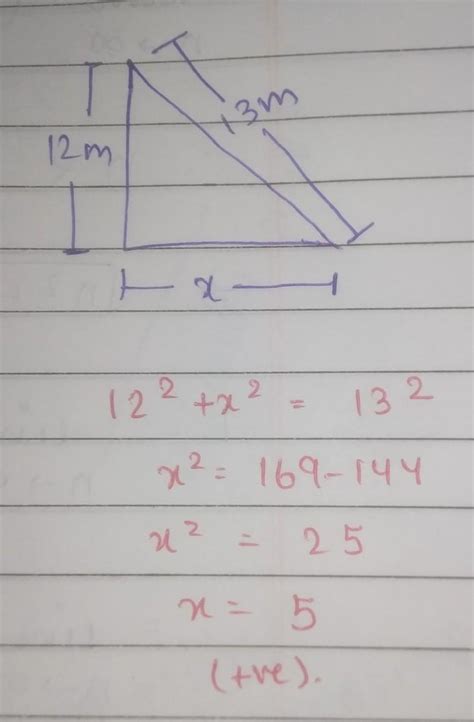 13m
12m
x
12² + x² = 13²
x² = 169 - 144
x² = 25
x = 5
(+ve).